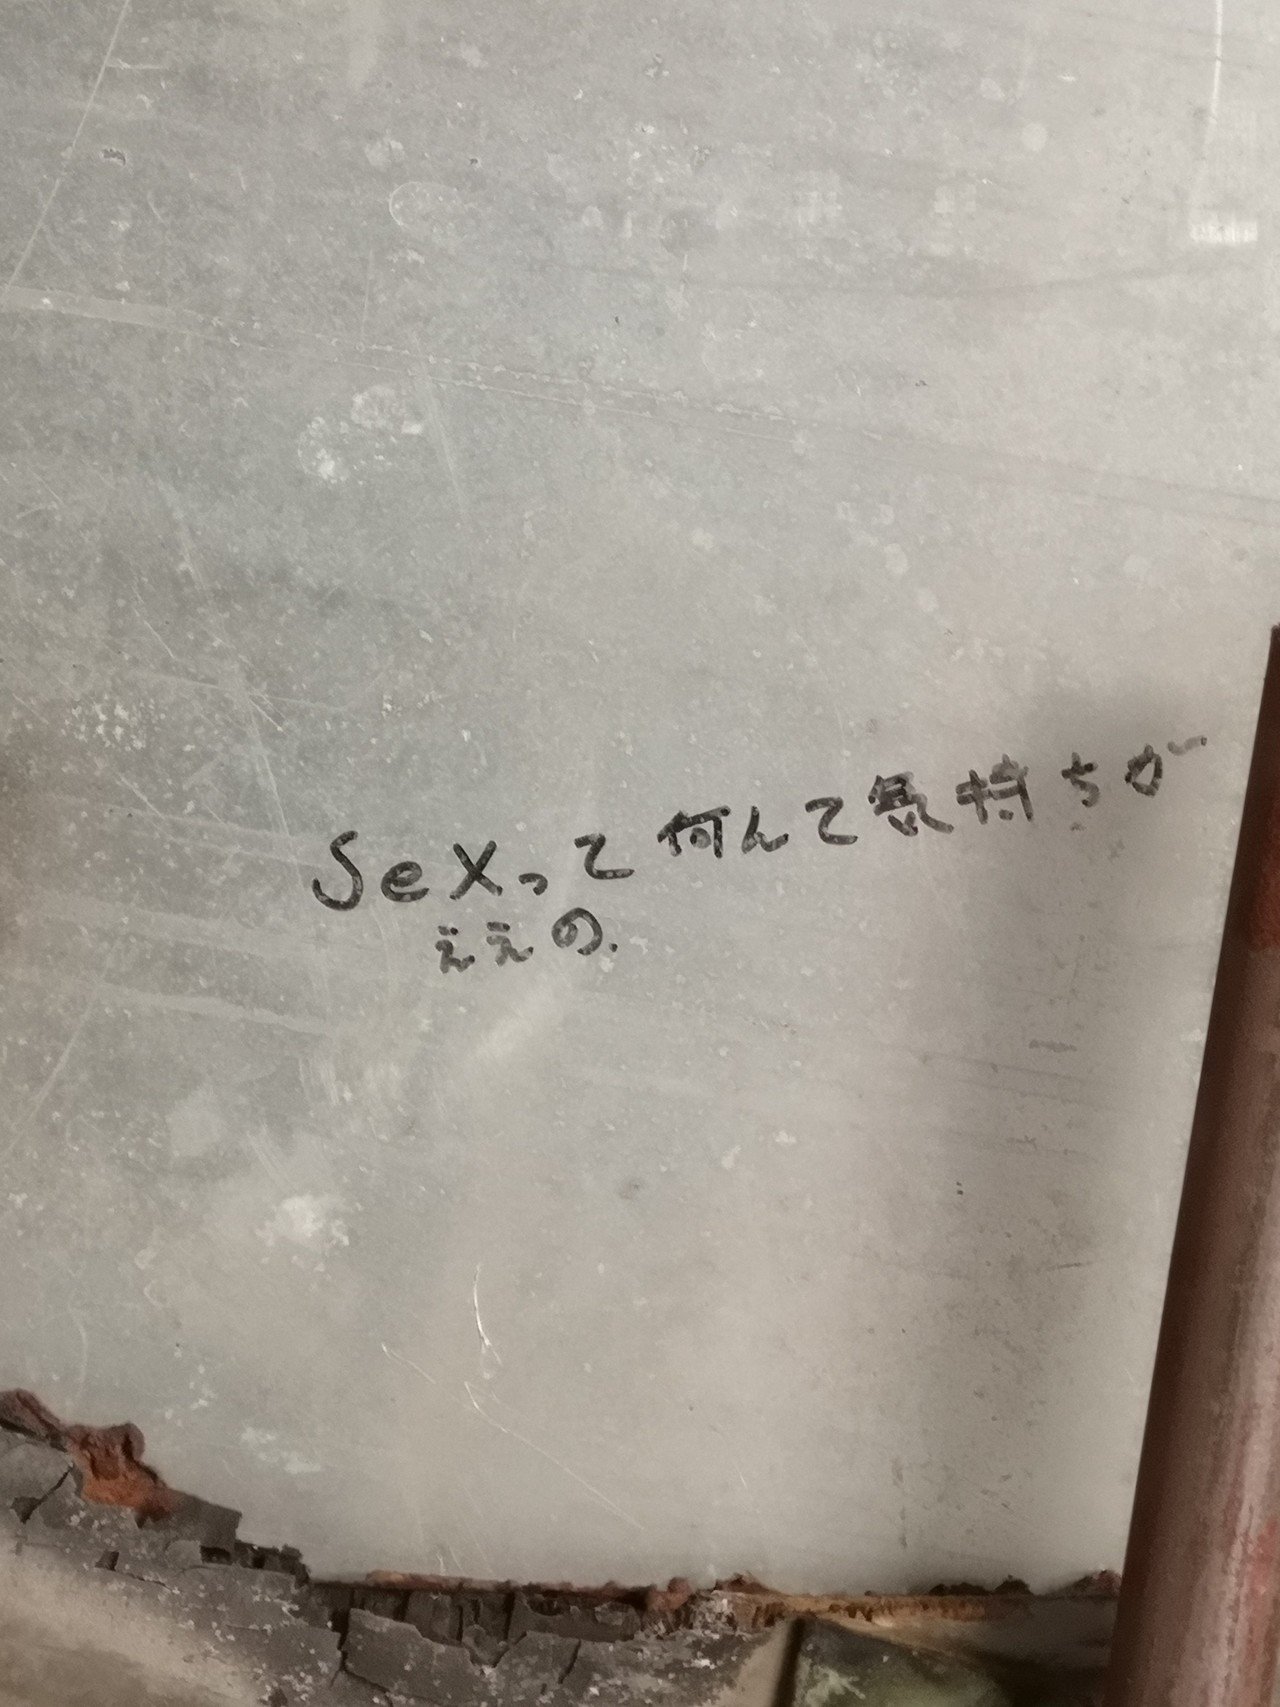 SeXって何んて気持ちが
ええの.